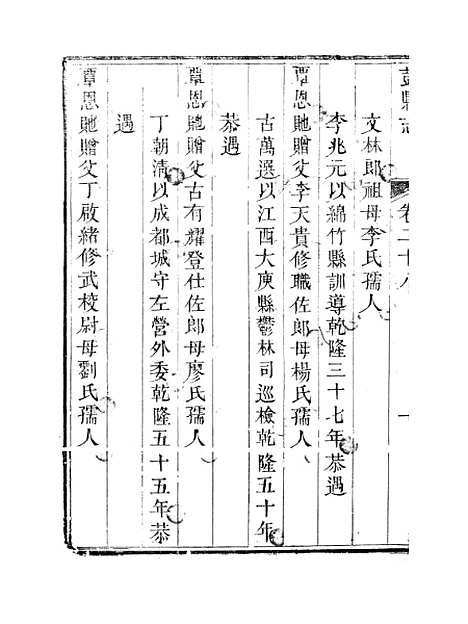 彭縣志 卷二十八 一
文林郎祖母李氏孺人
李兆元以綿竹縣訓導乾隆三十七年恭遇
覃恩貤贈父李天貴修職佐郎母楊氏孺人
古萬選以江西大庾縣鬱林司巡檢乾隆五十年
恭遇
覃恩貤贈父古有耀登仕佐郎母廖氏孺人
丁朝清以成都城守左營外委乾隆五十五年恭
遇
覃恩貤贈父丁啟緒修武校尉母劉氏孺人